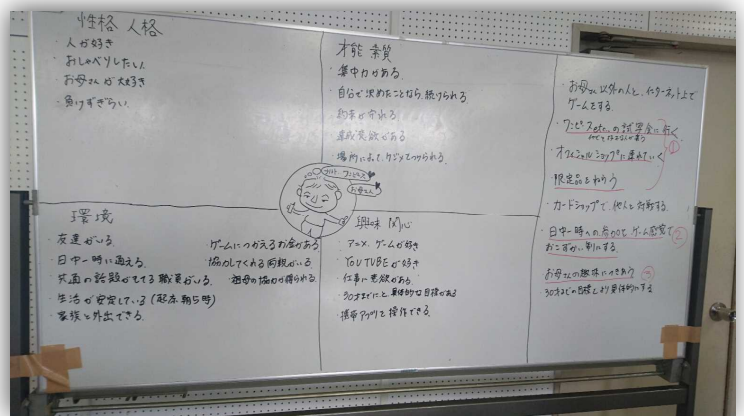 性格 人格
・人が好き
・おしゃべりしたい
・お母さんが大好き
・負けずぎらい
才能 素質
・集中力がある
・自分で決めたことなら、続けられる
・約束が守れる
・達成意欲がある
・場所によって、ケジメてつけられる
・お母さん以外の人と、インターネット上で
ゲームをする。
・ワンピースetc.の試写会に行く
・オフィシャルショップに連れていく
限定品をねらう
①
・カードショップで、他人と対戦する。
・日中一時への参加を、ゲーム感覚で
おこずかい制にする。
②
お母さんの趣味につきあう
③
30才までの目標をより具体的にする
ワンピース
お母さん
環境
・友達がいる。
・日中一時に通える。
・共通の話題がもてる職員がいる。
・生活が安定している(起床 朝5時)
・家族と外出できる。
ゲームにつかえるお金がある
・協力してくれる両親がいる。
・祖母の協力が得られる。
興味 関心
・アニメ、ゲームが好き
・YOUTUBEが好き
・仕事に意欲がある。
・30才までにと具体的な目標がある
・携帯アプリを操作できる。